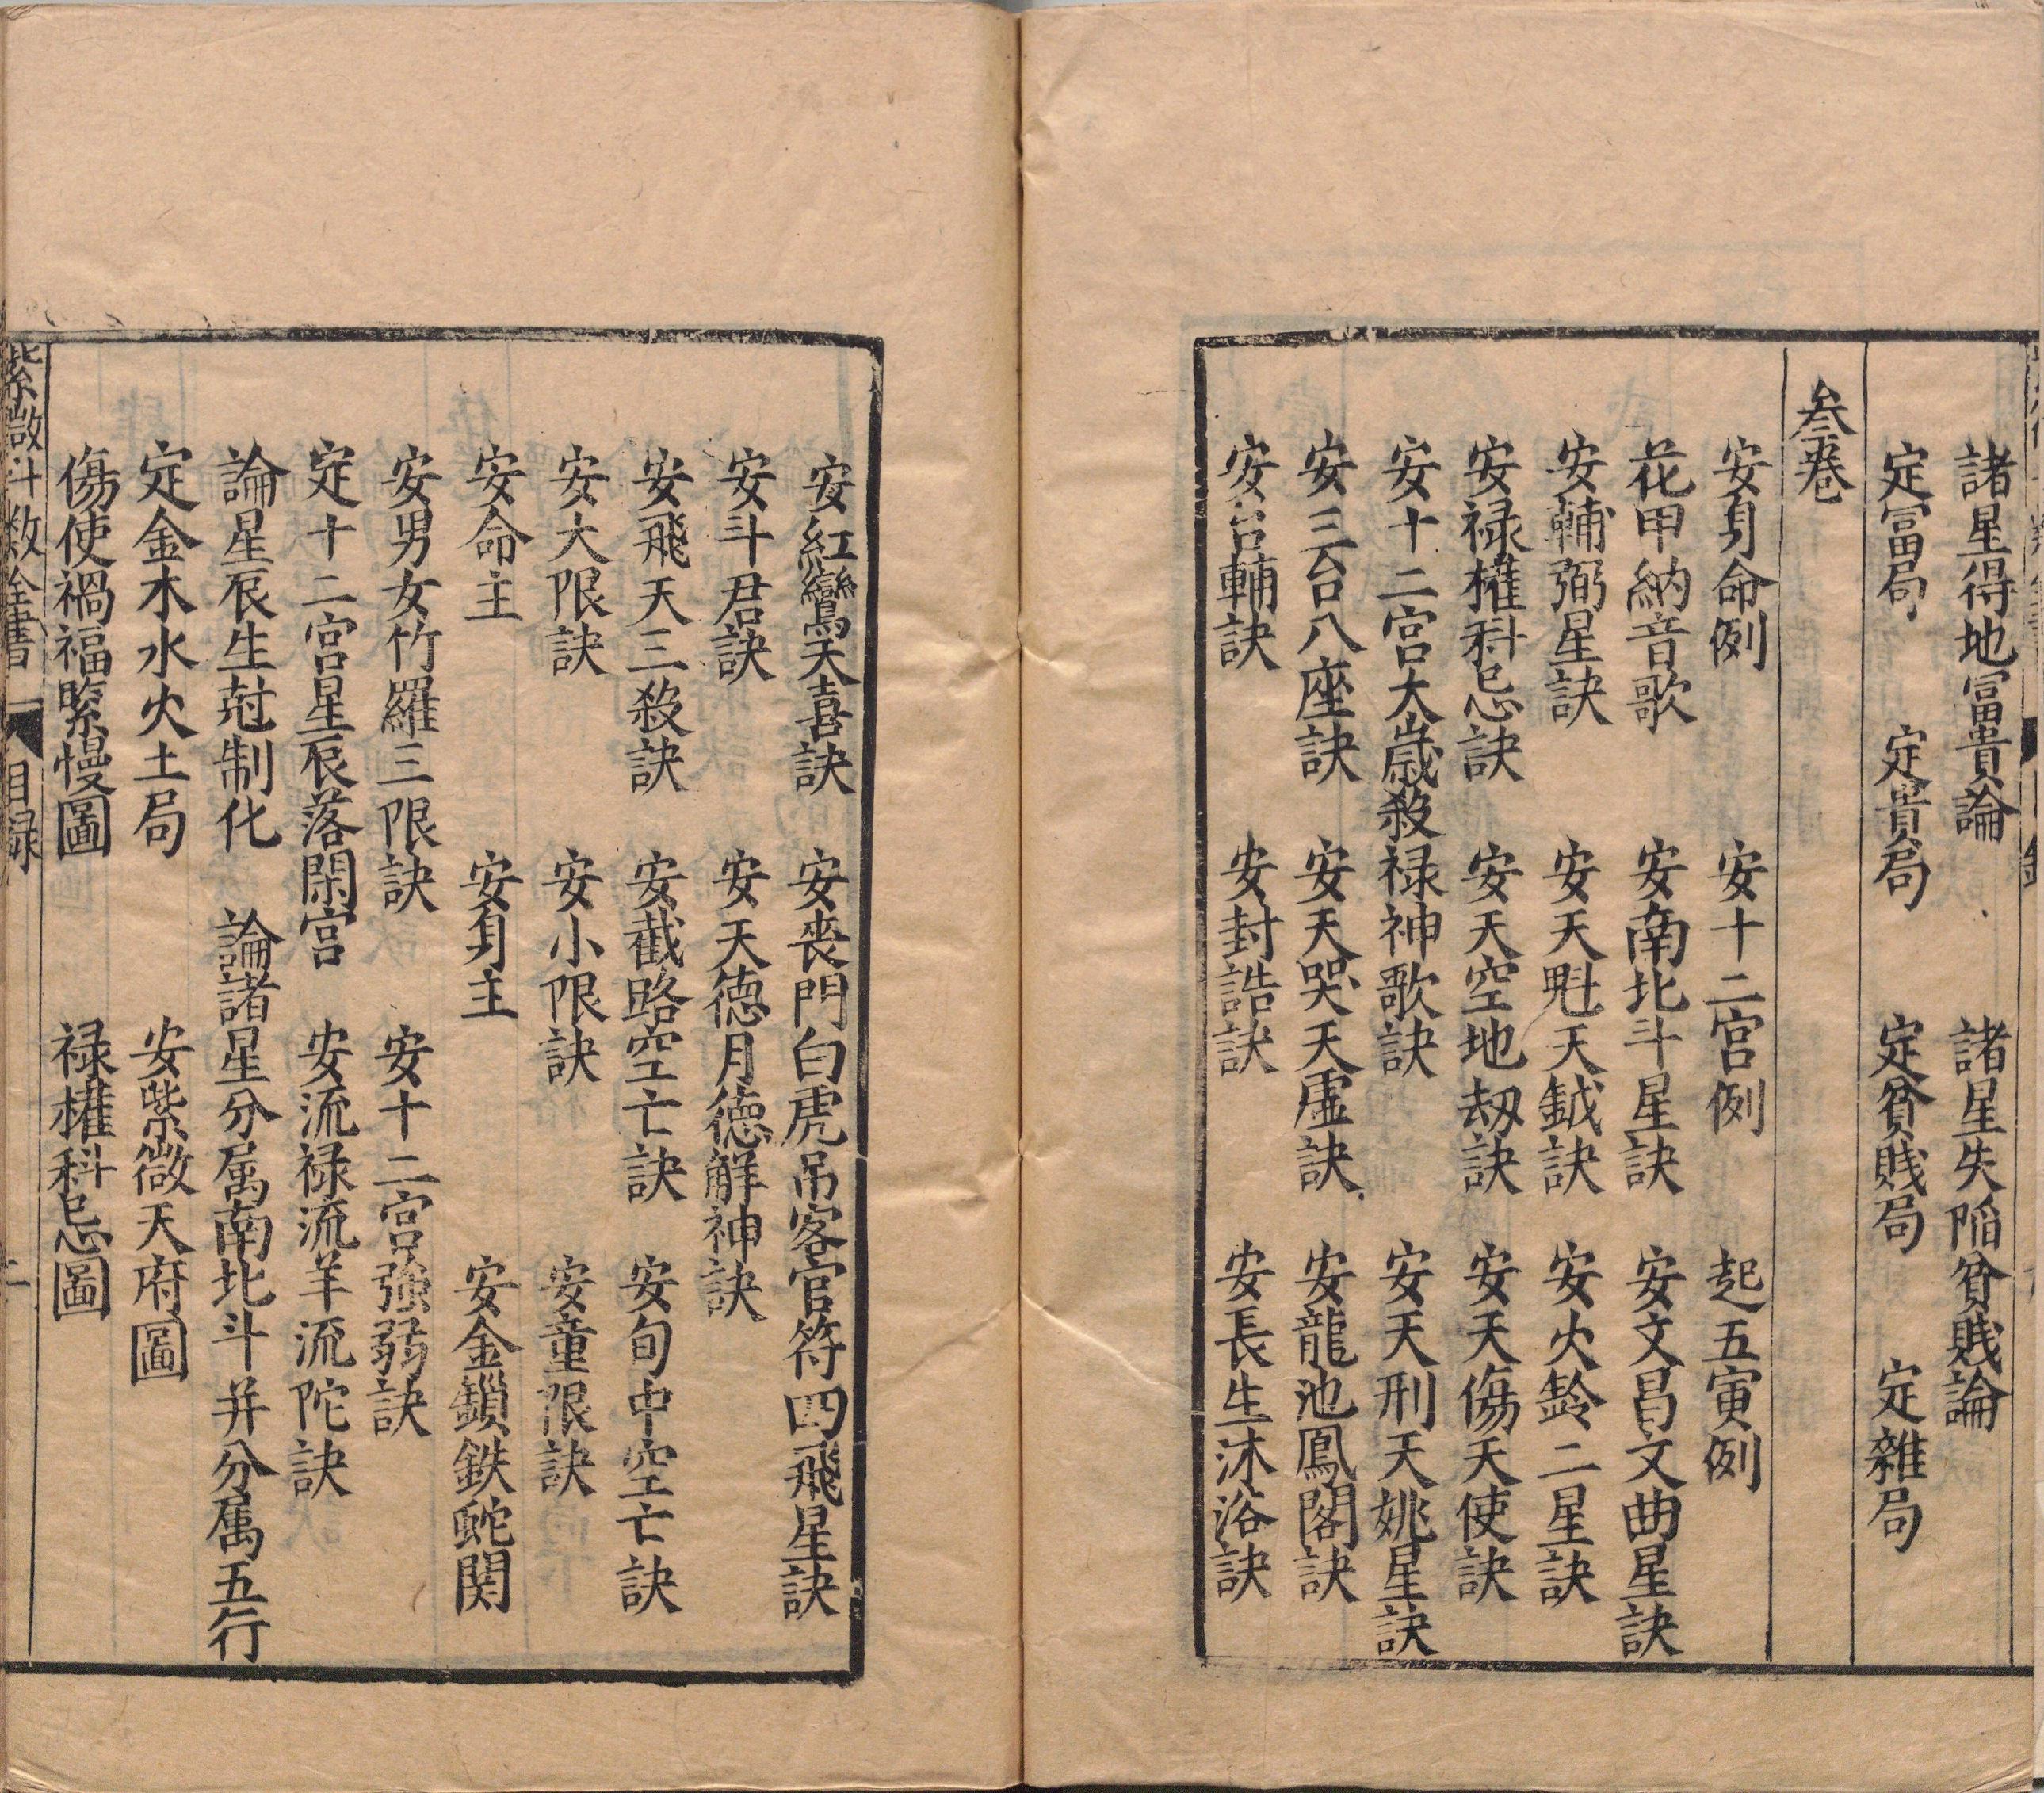 諸星得地富貴論 諸星失陷貧賤論
定富局 定貴局 定貧賤局 定雜局
叁卷
安身命例 安十二宮例 起五寅例
花甲納音歌 安南北斗星訣 安文昌文曲星訣
安輔弼星訣 安天魁天鉞訣 安火鈴二星訣
安祿權科忌訣 安天空地劫訣 安天傷天使訣
安十二宮太歲殺祿神歌訣 安天刑天姚星訣
安三台八座訣 安天哭天虛訣 安龍池鳳閣訣
安台輔訣 安封誥訣 安長生沐浴訣
安紅鸞天喜訣 安喪門白虎吊客官符四飛星訣
安斗君訣 安天德月德解神訣
安飛天三殺訣 安截路空亡訣 安旬中空亡訣
安大限訣 安小限訣 安童限訣
安命主 安身主 安金鎖鉄蛇関
安男女竹羅三限訣 安十二宮強弱訣
定十二宮星辰落閑宮 安流祿流羊流陀訣
論星辰生尅制化 論諸星分属南北斗并分属五行
定金木水火土局 安紫微天府圖
傷使禍福緊慢圖 祿權科忌圖
紫微斗数全書 目録 二